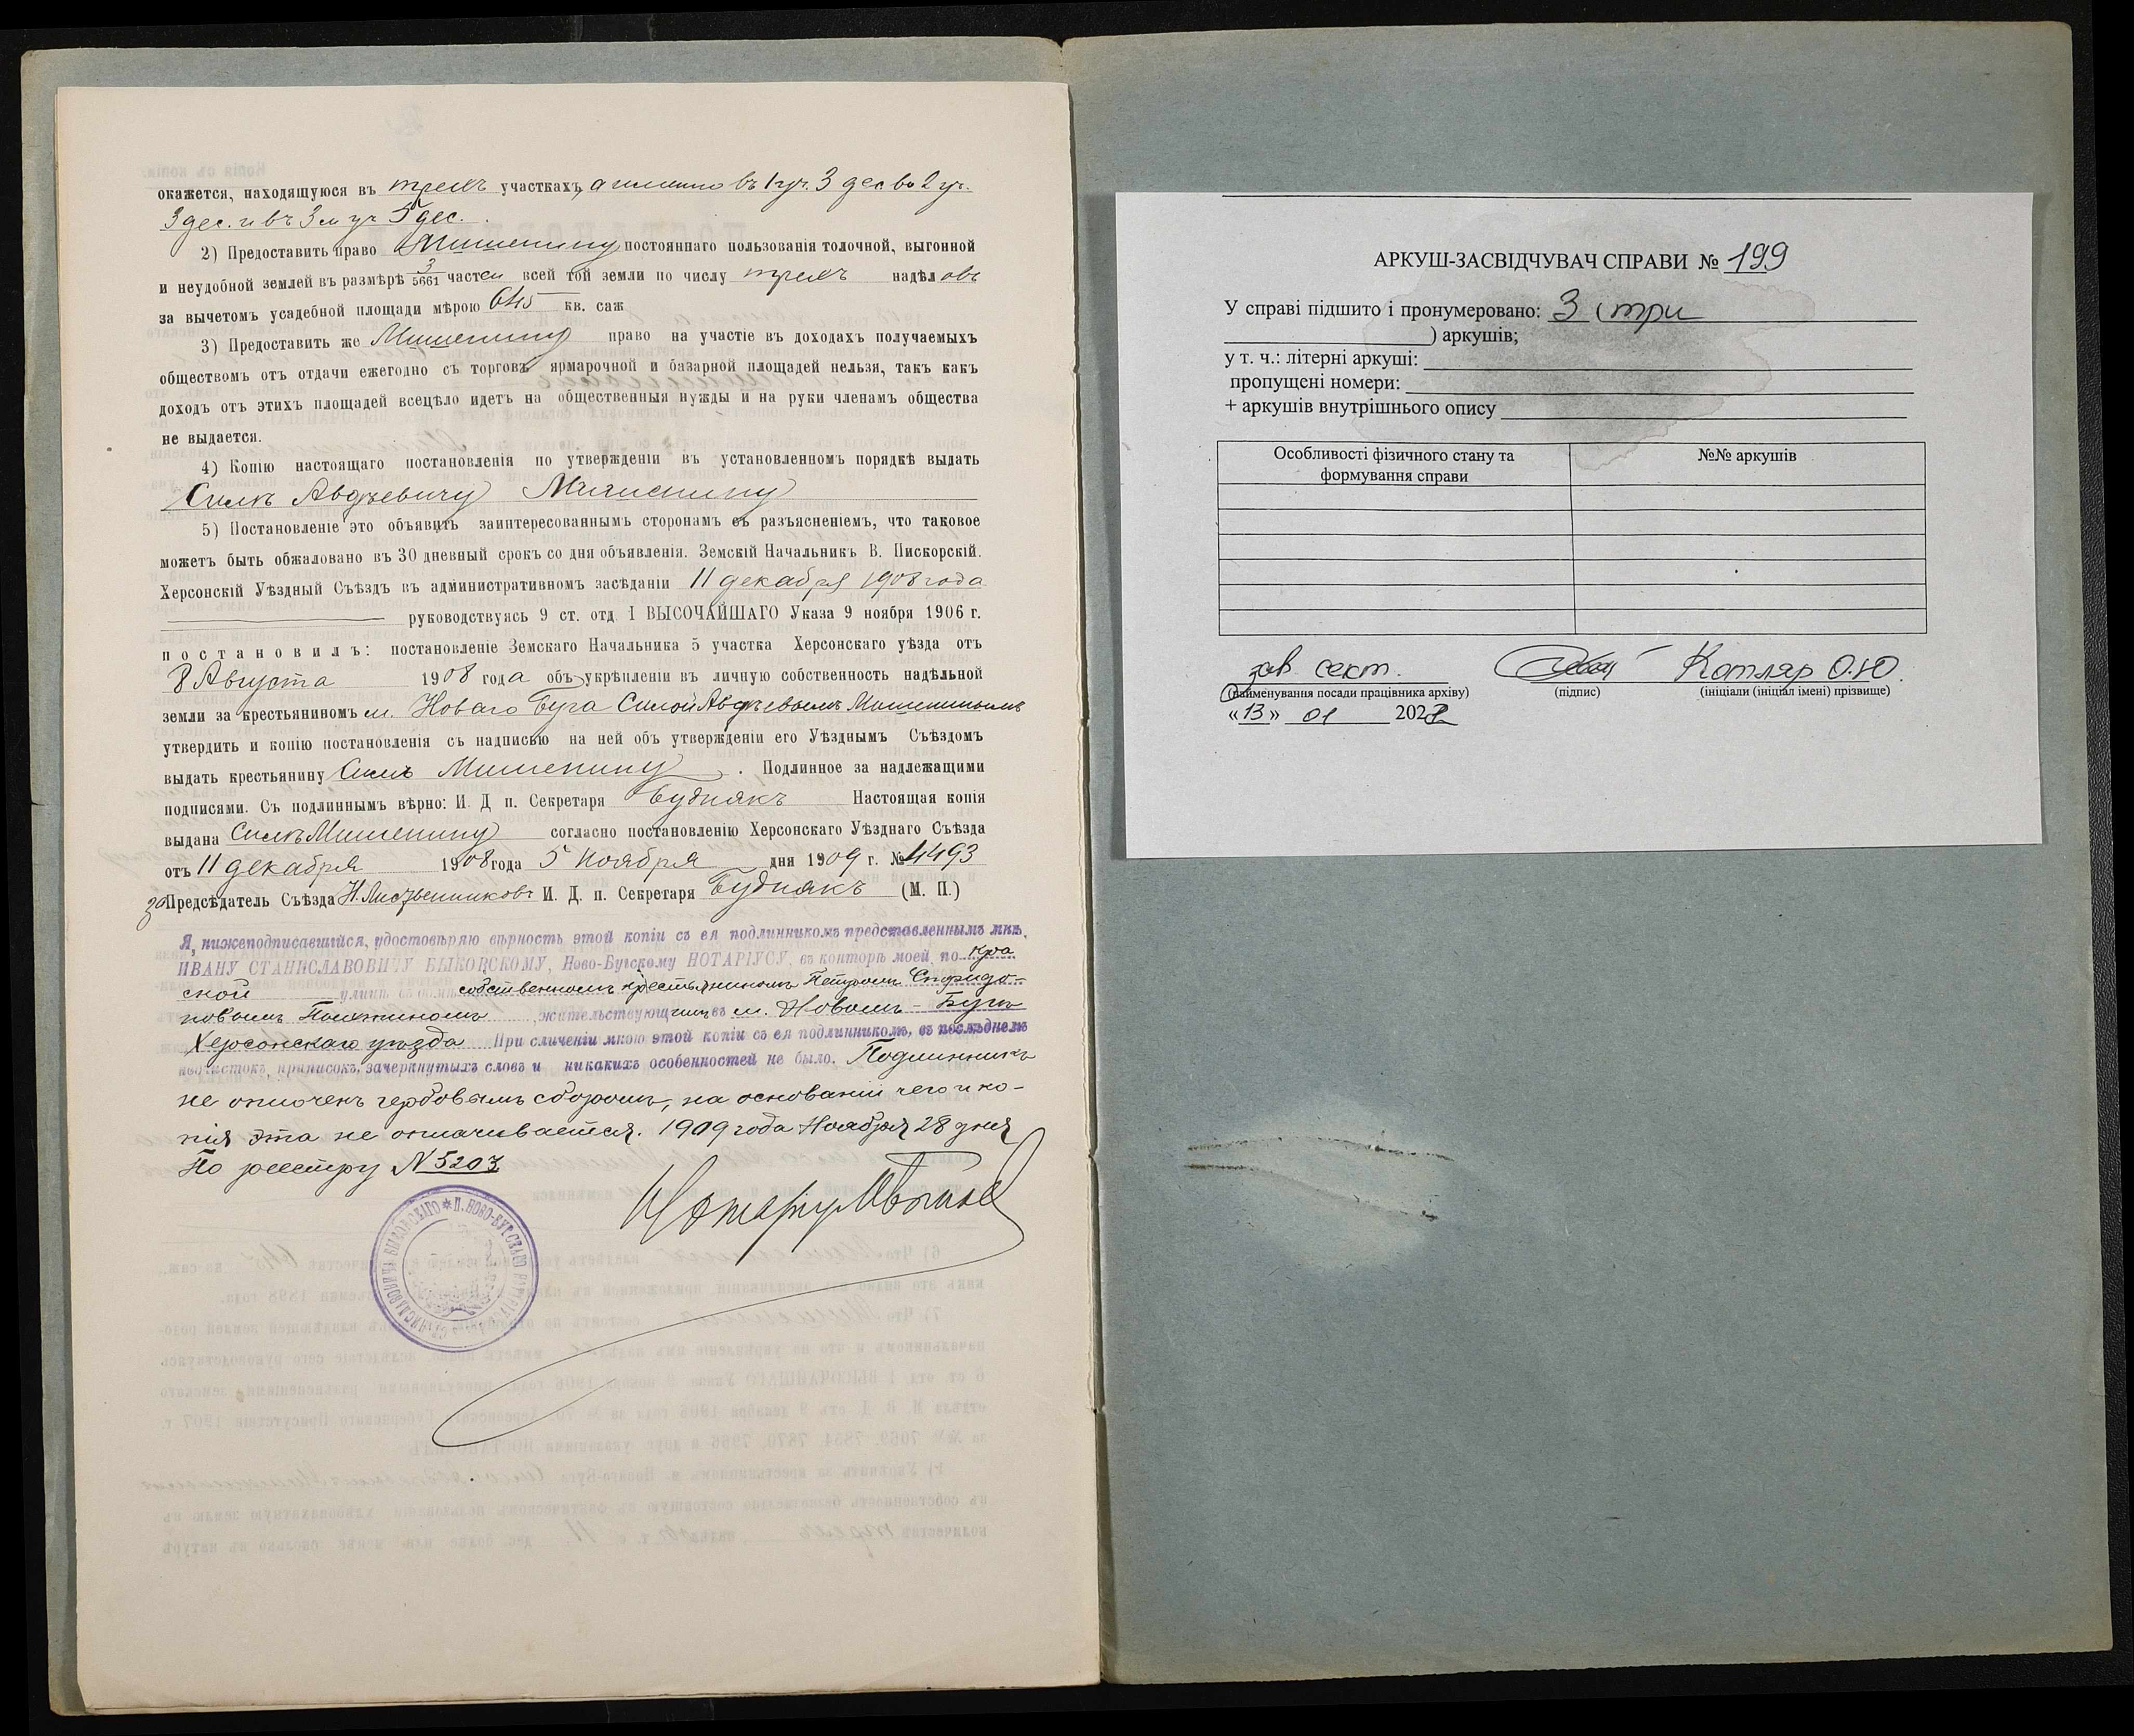 окажется, находящуюся въ трехъ участкахъ, а именно въ 1 уч. 3 дес во 2 уч.
3 дес. и въ 3 м уч 5 дес.
2) Предоставить право Мишенину постояннаго пользованія толочной, выгонной
и неудобной землей въ размѣрѣ 3/5661 частеи всей той земли по числу трехъ надѣловъ
за вычетомъ усадебной площади мѣрою 645 кв. саж
3) Предоставить же Мишенину право на участіе въ доходахъ получаемыхъ
обществомъ отъ отдачи ежегодно съ торговъ ярмарочной и базарной площадей нельзя, такъ какъ
доходъ отъ этихъ площадей всецѣло идетъ на общественныя нужды и на руки членамъ общества
не выдается.
4) Копію настоящаго постановленія по утвержденіи въ установленномъ порядкѣ выдать
Силѣ Авдѣевичу Мишенину
5) Постановленіе это объявить заинтересованнымъ сторонамъ съ разъясненіемъ, что таковое
можетъ быть обжаловано въ 30 дневный срокъ со дня объявленія. Земскій Начальникъ В. Пискорскій.
Херсонскій Уѣздный Съѣздъ въ административномъ засѣданіи 11 декабря 1908 года
руководствуясь 9 ст. отд. I ВЫСОЧАЙШАГО Указа 9 ноября 1906 г.
постановилъ: постановленіе Земскаго Начальника 5 участка Херсонскаго уѣзда отъ
8 Августа 1908 года объ укрѣпленіи въ личную собственность надѣльной
земли за крестьяниномъ м. Новаго Буга Силой Авдѣевымъ Мишенинымъ
утвердить и копію постановленія съ надписью на ней объ утвержденіи его Уѣзднымъ Съѣздомъ
выдать крестьянину Силѣ Мишенину. Подлинное за надлежащими
подписями. Съ подлиннымъ вѣрно: И. Д п. Секретаря Будиякъ Настоящая копія
выдана Силѣ Мишенину согласно постановленію Херсонскаго Уѣзднаго Съѣзда
отъ 11 декабря 1908 года 5 Ноября дня 1909 г. № 4493
За Предсѣдатель Съѣзда И. Д. п. Секретаря Будиякъ (М. П.)
Я, нижеподписавшійся, удостовѣряю вѣрность этой копіи съ ея подлинникомъ представленнымъ мнѣ,
ИВАНУ СТАНИСЛАВОВИЧУ БЫКОВСКОМУ, Ново-Бугскому НОТАРІУСУ, въ конторѣ моей, по
ской улицѣ собственномъ крестьяниномъ Петромъ Спиридо-
новымъ жительствующимъ въ м. Новомъ-Бугѣ
Херсонскаго уѣзда При сличеніи мною этой копіи съ ея подлинникомъ, въ послѣднемъ
подчистокъ, приписокъ, зачеркнутыхъ словъ и никакихъ особенностей не было. Подлинникъ
не оплоченъ гербовымъ сборомъ, на основаніи чего и ко-
пія эта не оплачивается. 1909 года Ноября 28 дня
По реестру № 5203
Нотаріусъ
АРКУШ-ЗАСВІДЧУВАЧ СПРАВИ № 199
У справі підшито і пронумеровано: 3 (три
) аркушів;
у т. ч.: літерні аркуші:
пропущені номери:
+ аркушів внутрішнього опису
Особливості фізичного стану та формування справи
№№ аркушів
зав. сект. Котляр О.Ю.
(найменування посади працівника архіву) (підпис) (ініціали (ініціал імені) прізвище)
«13» 01 2022